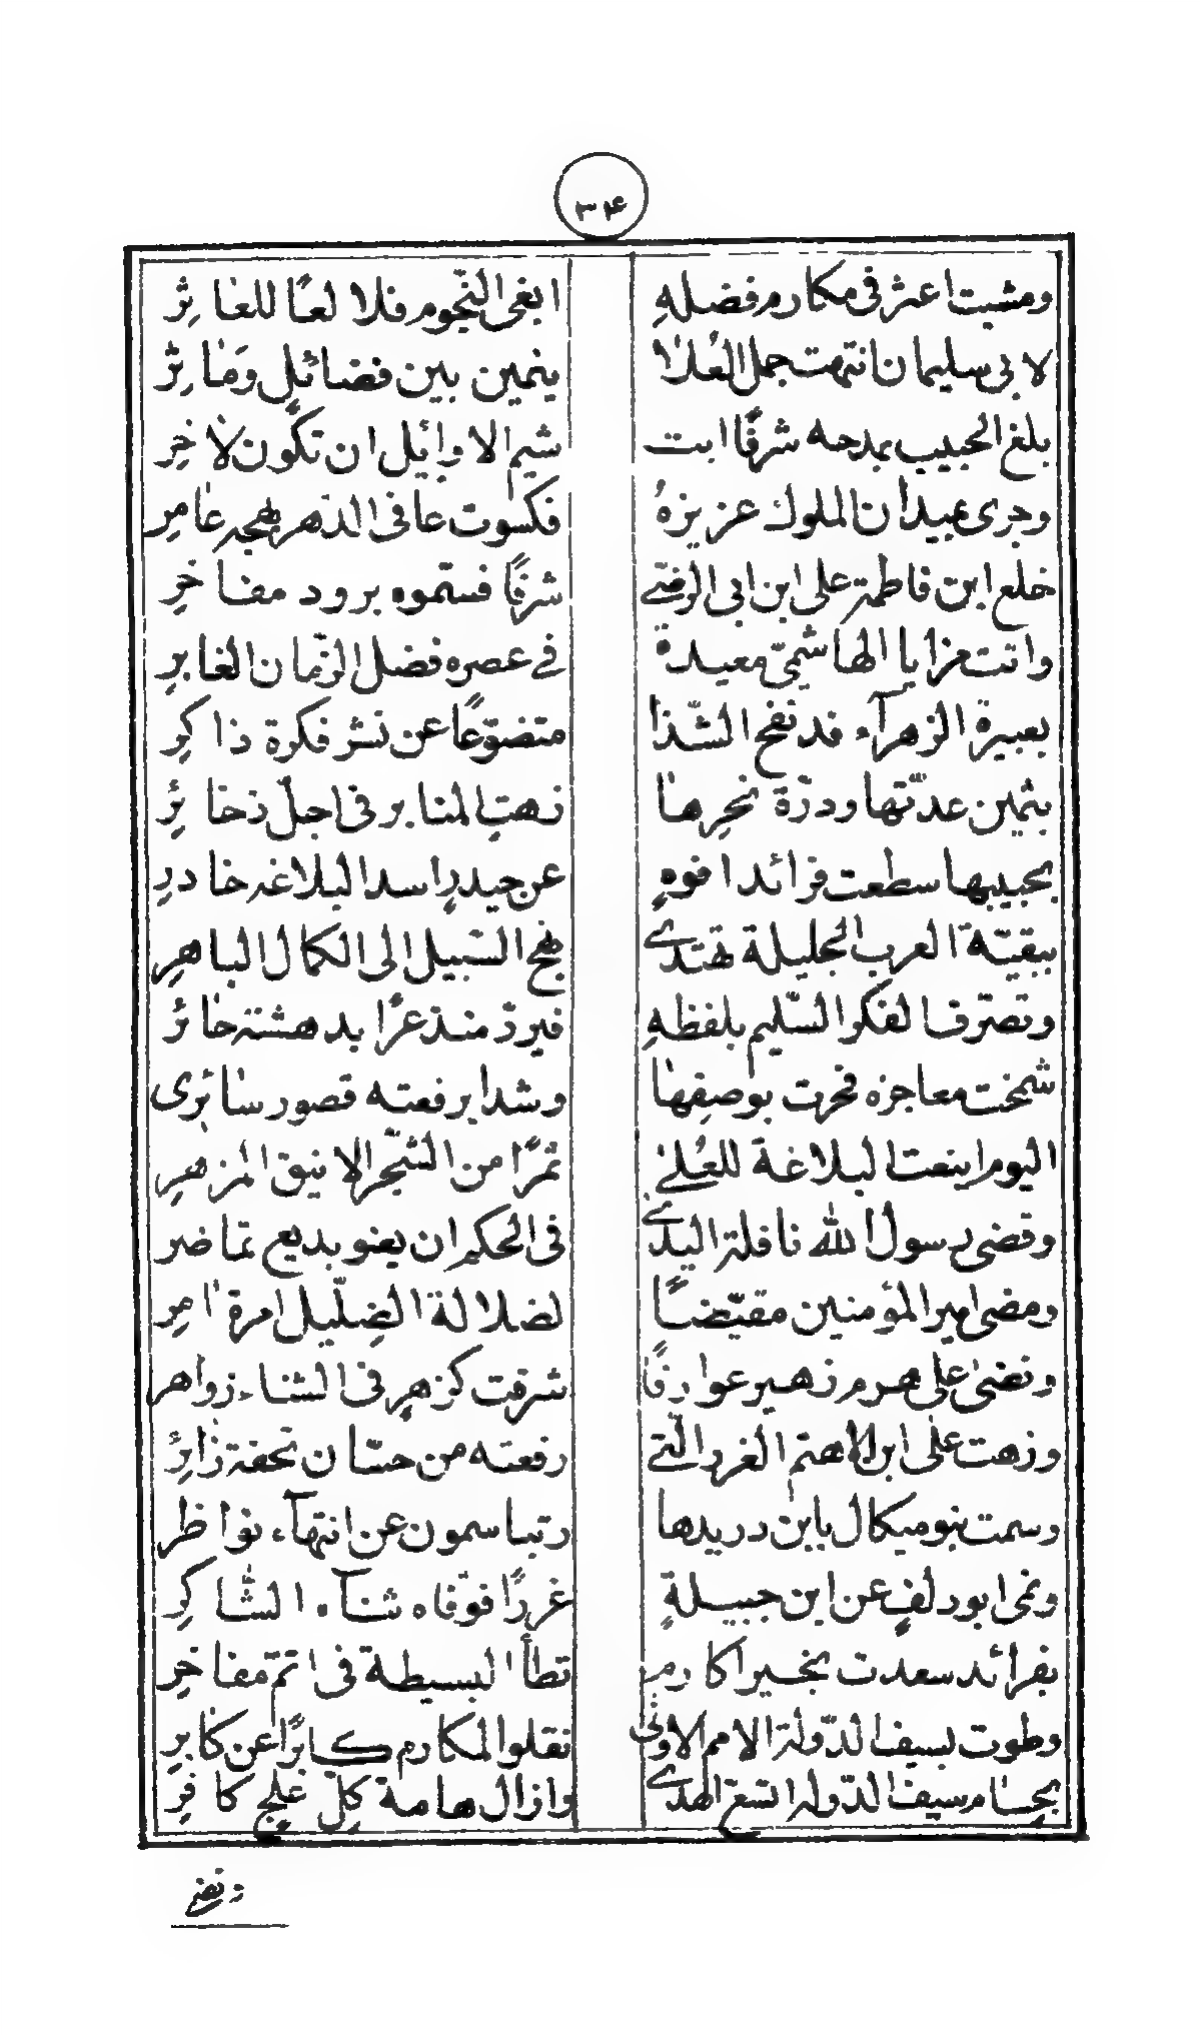 ۳۴
ومشيت اعثر فى مكارم فضلهِ ابغى النّجوم فلا لعًا للعٰا ثِرْ
لا بى سليمان انتهت جمل العُلاٰ ينمين بين فضائلٍ ومَاٰ ثِرْ
بلغ الحبيب بمدحه شرفًا ابت شيم الاوايْل ان تكون لاٰ خِرِ
وجرى عبيدان الملوك عزيزهُ فكسوت عافى الدّهر بهجه عٰامِرِ
خلع ابن فاطمة على ابن ابى الرضّے شرفًا فسمّوه برود مفا خرِ
واتت مزايا الهاشمىّ معيدة فے عصره فضل الزّمان الغابرِ
بعبيرة الزهرآء قد نفح الشّذا متضوّعًا عن نشر فكرة ذاكرِ
بثمين عدّتها ودرّة نحرِهٰا زهتِ المنابر فى اجلّ ذخا ئِرْ
بحبيبها سطعت فرائد افوهٍ عن جيدرٍ اسد البلاغه خا درِ
ببقيّة العرب الجليلة تهتدے نهج السّبيل الى الكمال الباهرِ
وتصرّف الفكر السّليم بلفظهِ فيردّ منذعرًا بدهشة حٰائرْ
شمخت معاجزه فخرت بوصفهٰا وشدا برفعته قصور سٰائرى
اليوم اينعت البلاغة للعُلےٰ ثمرًا من الشّجر الانيق المزهرِ
وقضى رسول الله نافلة اليدے فى الحكم ان يعنو بديع تماضر
ومضى امير المؤمنين مقيّضًا لضلالة الضِلّيل امرة اٰمِرِ
ونضىٰ على هرم زهير عوارفًا شرقت كزهرٍ فى الشتاء زواهر
وزهت علىٰ ابن الاهتم الغرر الّتے رفعته من حسّان تحفة زٰائرِ
وسمت بنو ميكال بابن دريدها رتبا سمون عن انتهآء نواظر
ونمى ابو دلفٍ عن ابن جبيلةٍ غررًا فوفاه شنآء الشّاكرِ
بفرائد سعدت بخير اكارم تطأ البسيطة فى اتمّ مفاخرِ
وطوت لسيف الدّولة الامم الاولى نقلوا المكارم كابرًا عن كابرِ
بحسام سيف الدّوله اتسع الهدے وازال هامة كلّ علجٍ كا فرِ